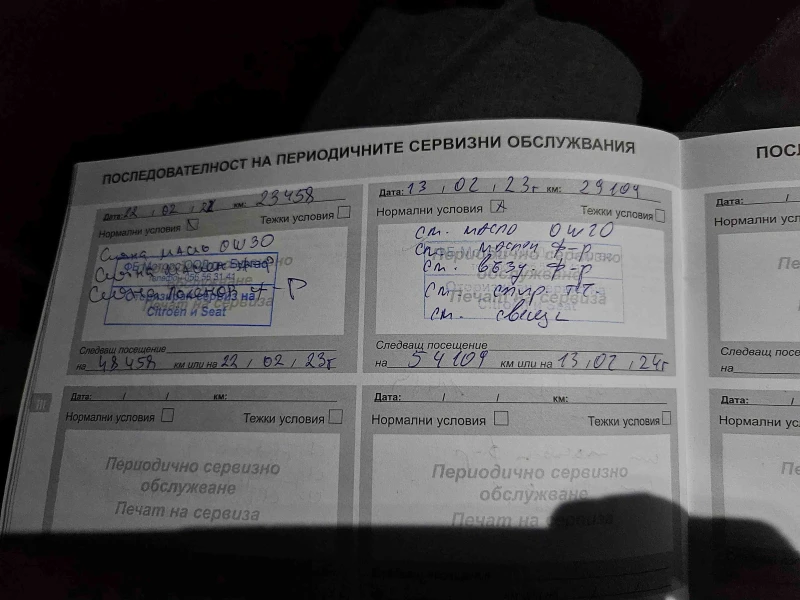 ПОСЛЕДОВАТЕЛНОСТ НА ПЕРИОДИЧНИТЕ СЕРВИЗНИ ОБСЛУЖВАНИЯ
ПОСЛ
Дата: 22 , 02 , 22 км: 23458
Нормални условия Тежки условия
Смяна масло 0W30
Смяна маслен ф-р
Смяна поленов ф-р
Оторизиран сервиз на
Citroën и Seat
Следващ посещение
на 48458 км или на 22 , 02 , 23г
Дата: 13 , 02 , 23г км: 29109
Нормални условия Тежки условия
см. масло 0W20
см. маслен ф-р
см. възд ф-р
см. спир. теч.
см. свещи
Следващ посещение
на 54109 км или на 13 , 02 , 24г
Дата: / /
Нормални условия
Следващ посещение
на
Дата: / / км:
Нормални условия Тежки условия
Периодично сервизно
обслужване
Печат на сервиза
Дата: / / км:
Нормални условия Тежки условия
Периодично сервизно
обслужване
Печат на сервиза
Дата: /
Нормални условия